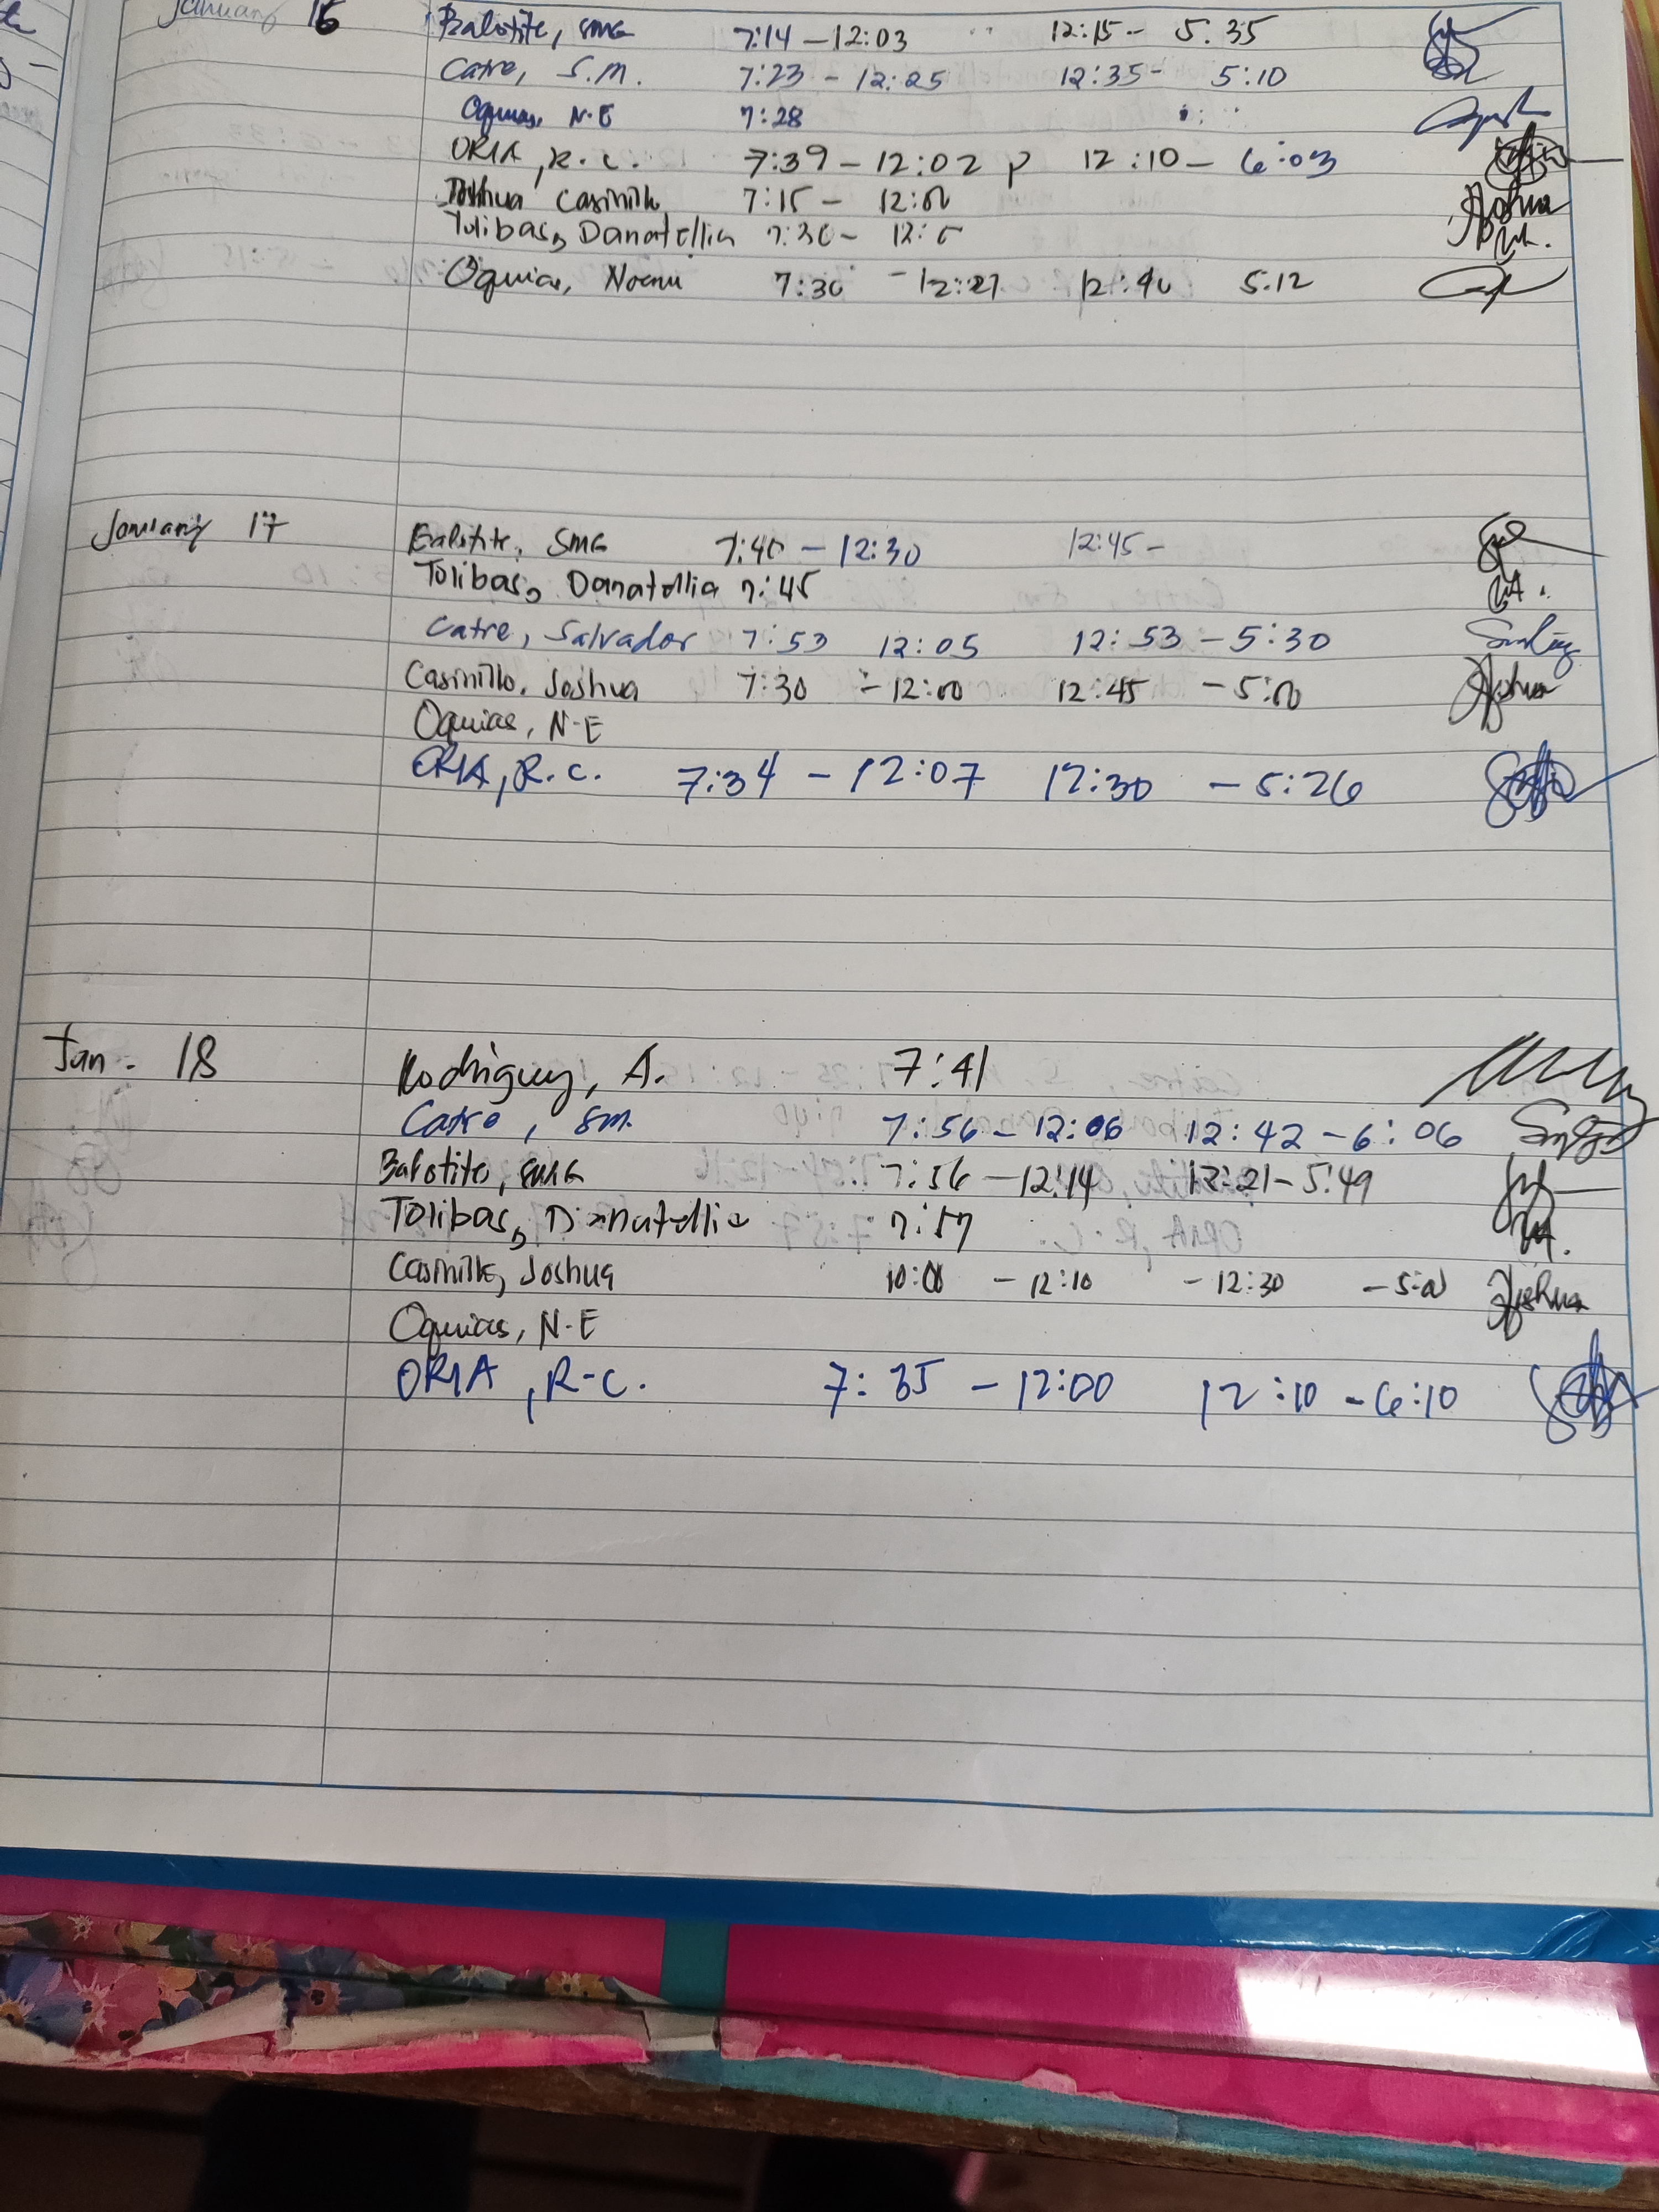 January 16 Balotite, SMG 7:14 - 12:03 12:15 - 5.35
Catre, S.M. 7:23 - 12:25 12:35 - 5:10
Oquias, N-E 7:28
ORIA, R.C. 7:39 - 12:02 p 12:10 - 6:03
Joshua Casinillo 7:15 - 12:00
Tolibas, Danatellia 7:30 -
Oquias, 7:30 - 12:27 12:40 5.12
January 17 Balotite, SMG 7:40 - 12:30 12:45 -
Tolibas, Danatellia 7:45
Catre, Salvador 7:53 12:05 12:53 - 5:30
Casinillo, Joshua 7:30 - 12:00 12:45 - 5:00
Oquias, N-E
ORIA, R.C. 7:34 - 12:07 12:30 - 5:26
Jan - 18 Rodriguez, A. 7:41
Catre, SM. 7:56 - 12:06 12:42 - 6:06
Balotite, SMG 7:56 - 12:14 12:21 - 5:49
Tolibas, Danatellia 7:57
Casinillo, Joshua 10:00 - 12:10 - 12:30 - 5:00
Oquias, N-E
ORIA, R-C. 7:35 - 12:00 12:10 - 6:10